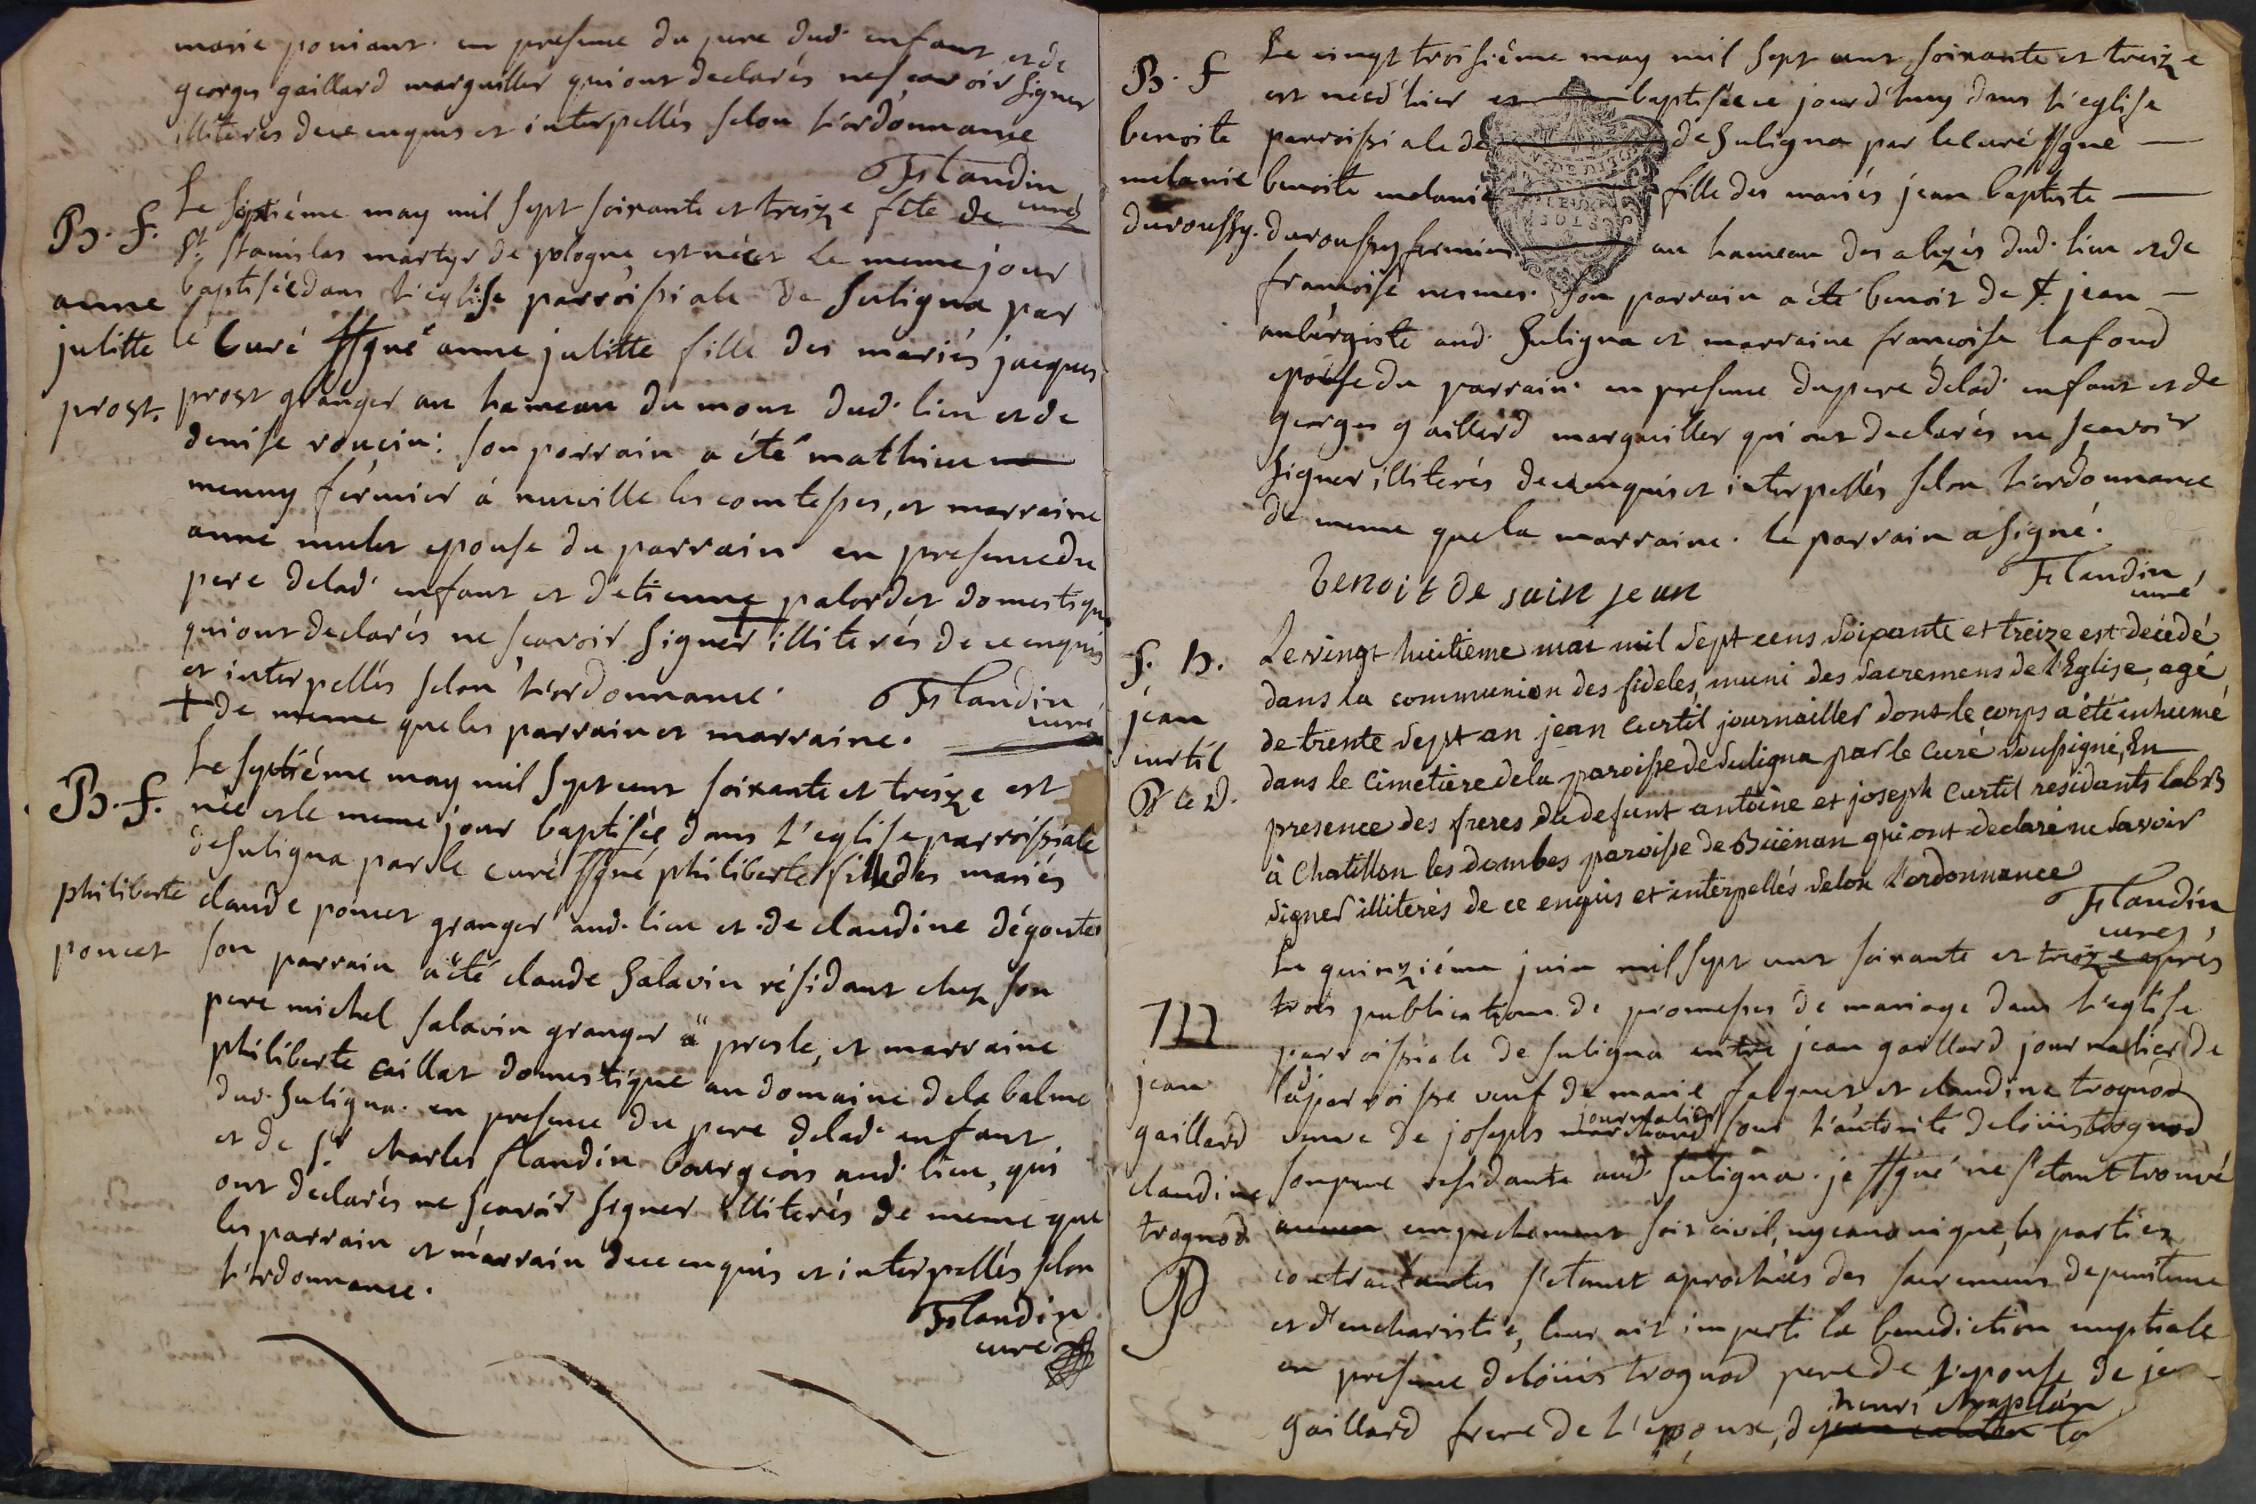 marie poncant. en presence du pere dud. enfant et de
georges gaillard marguiller qui ont declarés ne scavoir signer
illiterés de ce enquis et interpellés selon l'ordonnance
Flandin
curé
B. f.
anne
julitte
prost.
Le septiéme may mil sept soixante et treize fete de
st. stanislas martyr de pologne, est née et le meme jour
baptisée dans l'eglise parroissiale de suligna par
le Curé ssgné anne julitte fille des mariés jacques
prost granger au hameau du mont dud. lieu et de
denise roncin. son parrain a été mathieu
menny fermier á neuville les comtesses, et marraine
anne mulet epouse du parrain en presence du
pere de lad. enfant et d'etienne palordet domestique
qui ont declarés ne scavoir signer + illiterés de ce enquis
et interpellés selon l'ordonnance.
Flandin
curé
+ de meme que les parrain et marraine.
B. f.
philiberte
poncet
Le septiéme may mil sept cent soixante et treize est
née et le meme jour baptisée dans l'eglise parroissiale
de suligna par le curé ssgné philiberte fille des mariés
claude poncet granger aud. lieu et de claudine dégoutes
son parrain a été claude Salavin résidant chez son
pere michel salavin granger á presle, et marraine
philiberte caillat domestique au domaine de la balme
dud. Suligna. en presence du pere de lad. enfant
et de sr. charles flandin bourgeois aud. lieu, qui
ont declarés ne scavoir signer illiterés de meme que
les parrain et marrain de ce enquis et interpellés selon
l'ordonnance.
Flandin
curé
B. f
benoite
melanie
duroussy.
Le vingt troisiéme may mil sept cent soixante et treize
est née d'hier et baptisée ce jourd'huy dans l'eglise
parroissiale de de Suligna par le curé ssgné
benoite melanie fille des mariés jean baptiste
duroussy fermier au hameau des alizés dud. lieu et de
françoise nesmes. son parrain a été benoit de st. jean
aubergiste aud. Suligna et marraine françoise lafond
epouse du parrain. en presence du pere de lad. enfant et de
georges gaillard marguiller qui ont declarés ne scavoir
signer illiterés de ce enquis et interpellés selon l'ordonnance
de meme que la marraine. le parrain a signé.
benoit de sain jean
Flandin,
curé
S. h.
jean
curtil
Le vingt huitieme mai mil sept cens soixante et treize est décédé
dans la communion des fideles, muni des sacremens de l'Eglise, agé
de trente sept an jean Curtil journailler dont le corps a été inhumé
dans le cimetiere de la paroisse de Suligna par le Curé soussigné, En
presence des freres du defunt antoine et joseph Curtil residants labrs
à Chatillon les dombes paroisse de Buënan qui ont declaré ne savoir
signer illiterés de ce enquis et interpellés selon l'ordonnance
Flandin
curé,
M
jean
gaillard
claudine
trognod
Le quinziéme juin mil sept cent soixante et treize aprés
trois publications de promesses de mariage dans l'eglise
parroissiale de suligna entre jean gaillard journalier de
la parroisse veuf de marie falquet et claudine trognod
journalier
veuve de joseph marchand sous l'autorité de loüis trognod
son pere residante aud. Suligna. je ssgné ne s'etant trouvé
aucun empechement soit civil, ny canonique, les parties
contractantes s'etant aprochées des sacremens de penitence
et d'eucharistie, leur ait imparti la benediction nuptiale
en presence de loüis trognod pere de l'epouse de je
henri chapelan
gaillard frere de l'epoux, de